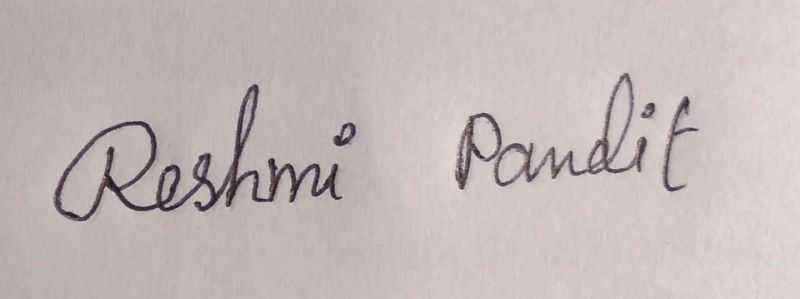 Reshmi Pandit